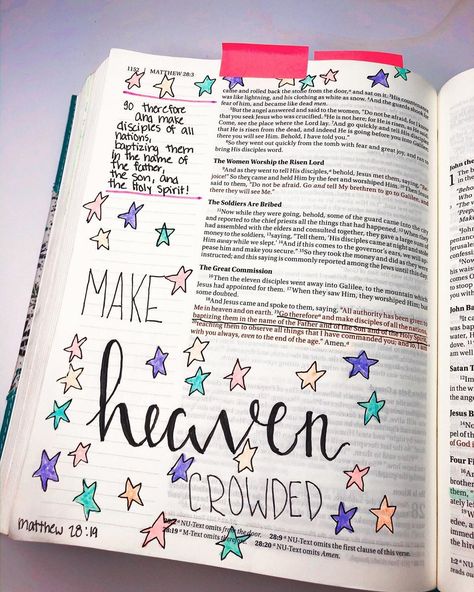 1152 | MATTHEW 28:3
go therefore
and make
disciples of all
nations,
baptizing them
in the name
of the father,
the son, and
the Holy Spirit!
came and rolled back the stone from the door, and sat on it. His countenance
was like lightning, and his clothing as white as snow. And the guards shook for
fear of him, and became like dead men.
But the angel answered and said to the women, "Do not be afraid, for I know
that you seek Jesus who was crucified. He is not here; for He is risen, as He said.
Come, see the place where the Lord lay. And go quickly and tell His disciples
that He is risen from the dead, and indeed He is going before you into Galilee;
there you will see Him. Behold, I have told you."
So they went out quickly from the tomb with fear and great joy, and ran to
bring His disciples word.
The Women Worship the Risen Lord
And as they went to tell His disciples, behold, Jesus met them, saying, "Re-
joice!" So they came and held Him by the feet and worshiped Him. Then Jesus
said to them, "Do not be afraid. Go and tell My brethren to go to Galilee, and
there they will see Me."
The Soldiers Are Bribed
Now while they were going, behold, some of the guard came into the city
and reported to the chief priests all the things that had happened. When they
had assembled with the elders and consulted together, they gave a large sum of
money to the soldiers, saying, "Tell them, 'His disciples came at night and stole
Him away while we slept.' And if this comes to the governor's ears, we will ap-
pease him and make you secure." So they took the money and did as they were
instructed; and this saying is commonly reported among the Jews until this day.
The Great Commission
Then the eleven disciples went away into Galilee, to the mountain which
Jesus had appointed for them. When they saw Him, they worshiped Him; but
some doubted.
And Jesus came and spoke to them, saying, "All authority has been given to
Me in heaven and on earth. Go therefore and make disciples of all the nations,
baptizing them in the name of the Father and of the Son and of the Holy Spirit,
teaching them to observe all things that I have commanded you; and lo, I am
with you always, even to the end of the age." Amen.
MAKE
heaven
CROWDED
matthew 28:19
28:2 NU-Text omits from the door. 28:9 NU-Text omits the first clause of this verse.
28:19 M-Text omits therefore. 28:20 NU-Text omits Amen.